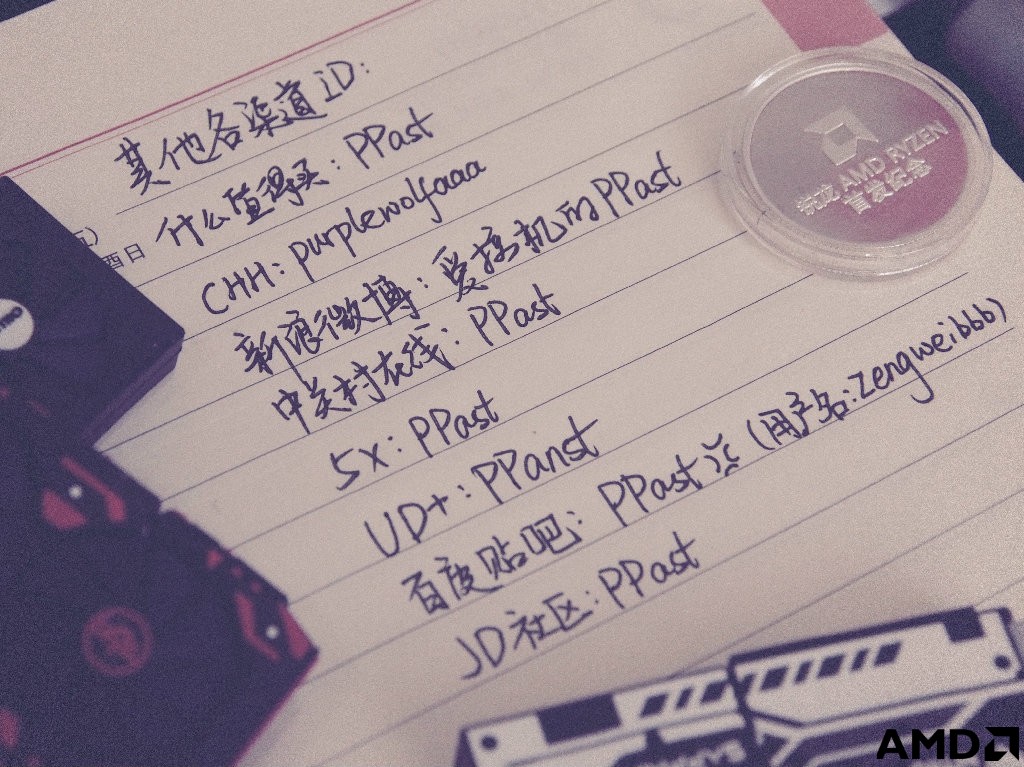 其他各渠道ID:
什么值得买: PPast
CHH: purplewolfaaa
新浪微博: 爱搞机的PPast
中关村在线: PPast
5X: PPast
UD+: PPanst
百度贴吧: PPast炎 (用户名: zengweibbb)
JD社区: PPast
酉日
锐龙 AMD RYZEN
首发纪念
AMD